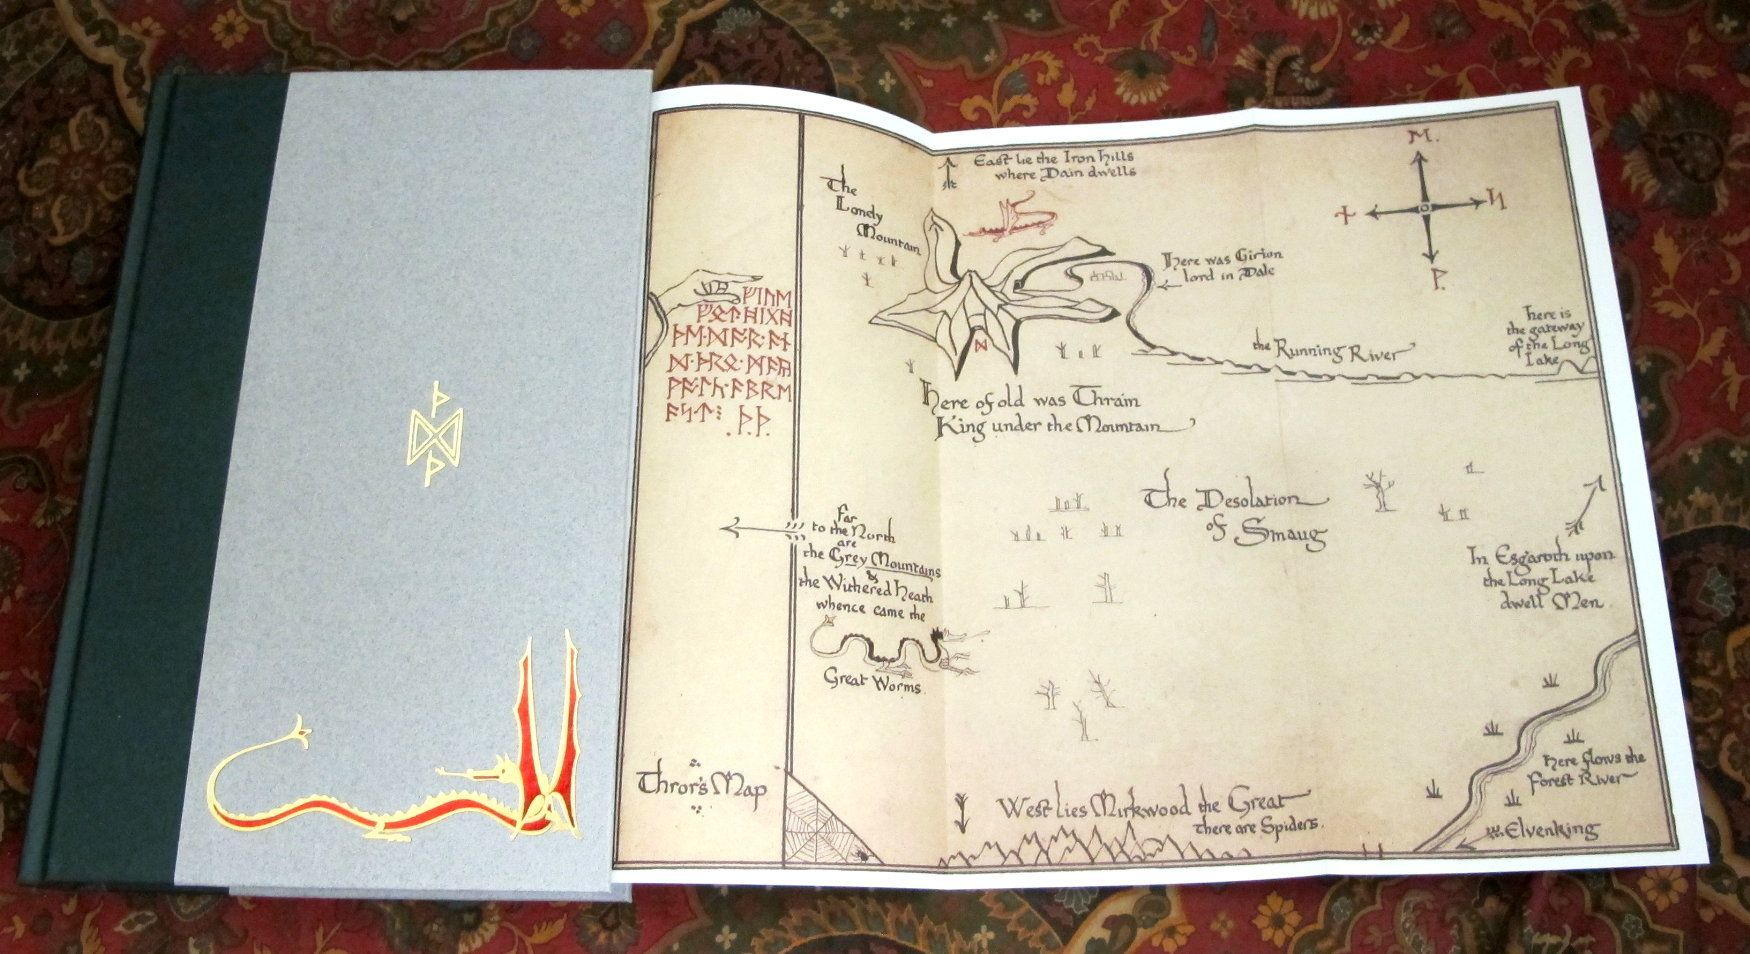 ᚦ
ᛞ
ᚦ
ᚠᛁᚢᛖ
ᚠᛟᛏᚻᛁᚷᚻ
ᚦᛖ᛫ᛞᚩᚱ᛫ᚪᚾ
ᛞ᛫ᚦᚱᛟ᛫ᛗᚪᚣ
ᚹᚪᛚᚳ᛫ᚪᛒᚱᛖ
ᚪᛋᛏ⁝
᛫ᚦ᛫ᚦ᛫
The
Lonely
Mountain
East lie the Iron Hills
where Dain dwells
ᛖ.
ᚾ
ᛋ
ᚹ.
ᛞ
Here was Girion
lord in Dale
the Running River
Here is
the gateway
of the Long
Lake
Here of old was Thrain
King under the Mountain
The Desolation
of Smaug
Far
to the North
are
the Grey Mountains
&
the Withered Heath
whence came the
Great Worms.
In Esgaroth upon
the Long Lake
dwell Men.
Thror's Map
West lies Mirkwood the Great
There are Spiders.
Here flows the
Forest River
Elvenking